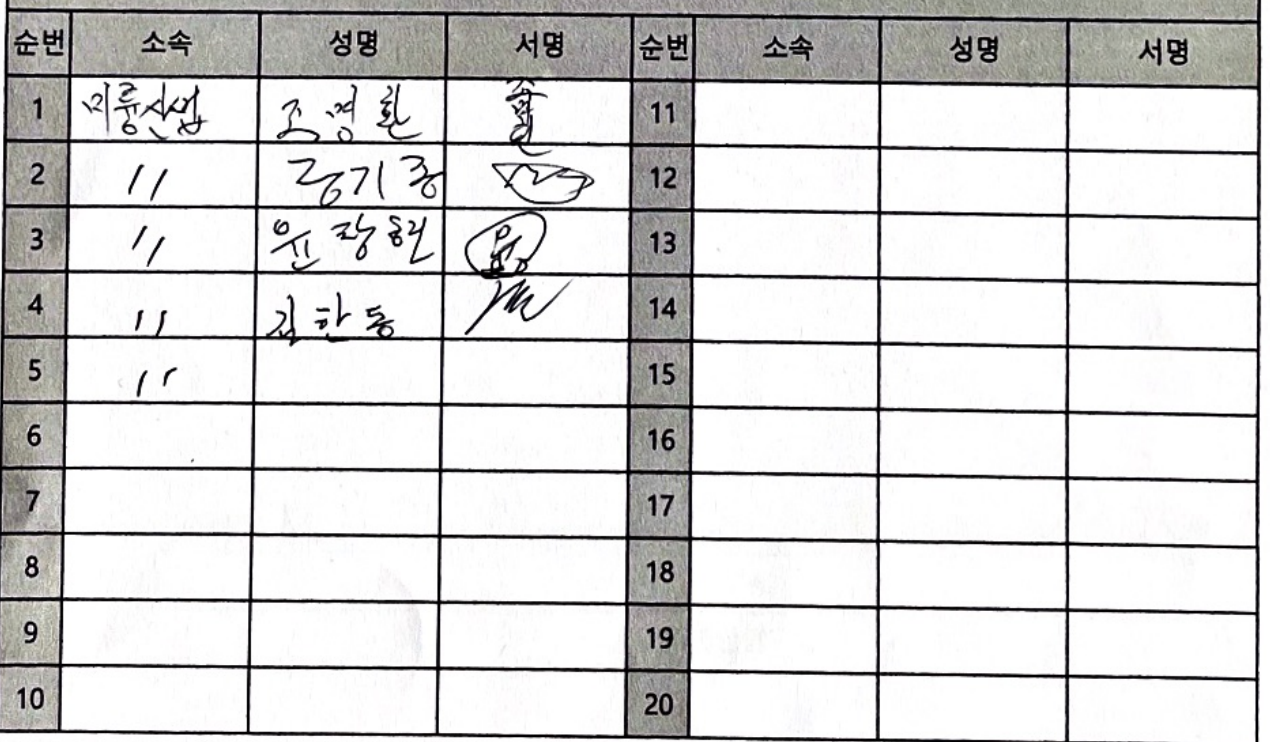 순번 소속 성명 서명 순번 소속 성명 서명
1 미룽산업 조명환 11
2 〃 공기중 12
3 〃 윤장현 13
4 〃 김한동 14
5 〃 15
6 16
7 17
8 18
9 19
10 20